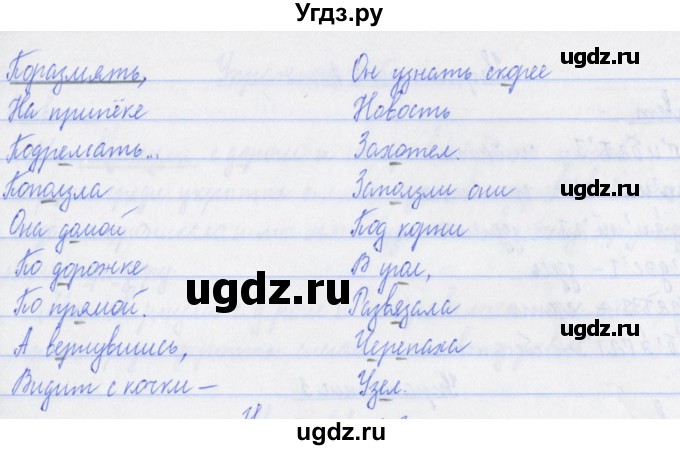 Угдз.ру
Поразмять,
На припёке
Подремать...
Поползла
Она домой
По дорожке
По прямой.
А вернувшись,
Видит с кочки –
Он узнать скорее
Новость
Захотел.
Заползли они
Под корни
В угол,
Развязала
Черепаха
Узел.
ugdz.ru
ugdz.ru
ugdz.ru
ugdz.ru
ugdz.ru
ugdz.ru